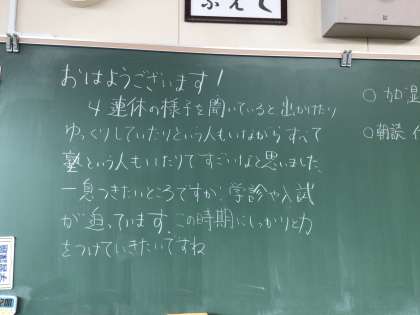 おはようございます!
4連休の様子を聞いていると出かけたり
ゆっくりしていたりという人もいながらすべて
塾という人もいたりですごいなと思いました。
一息つきたいところですが、学診や入試
が迫っています。この時期にしっかりと力
をつけていきたいですね
○加湿
○朝読